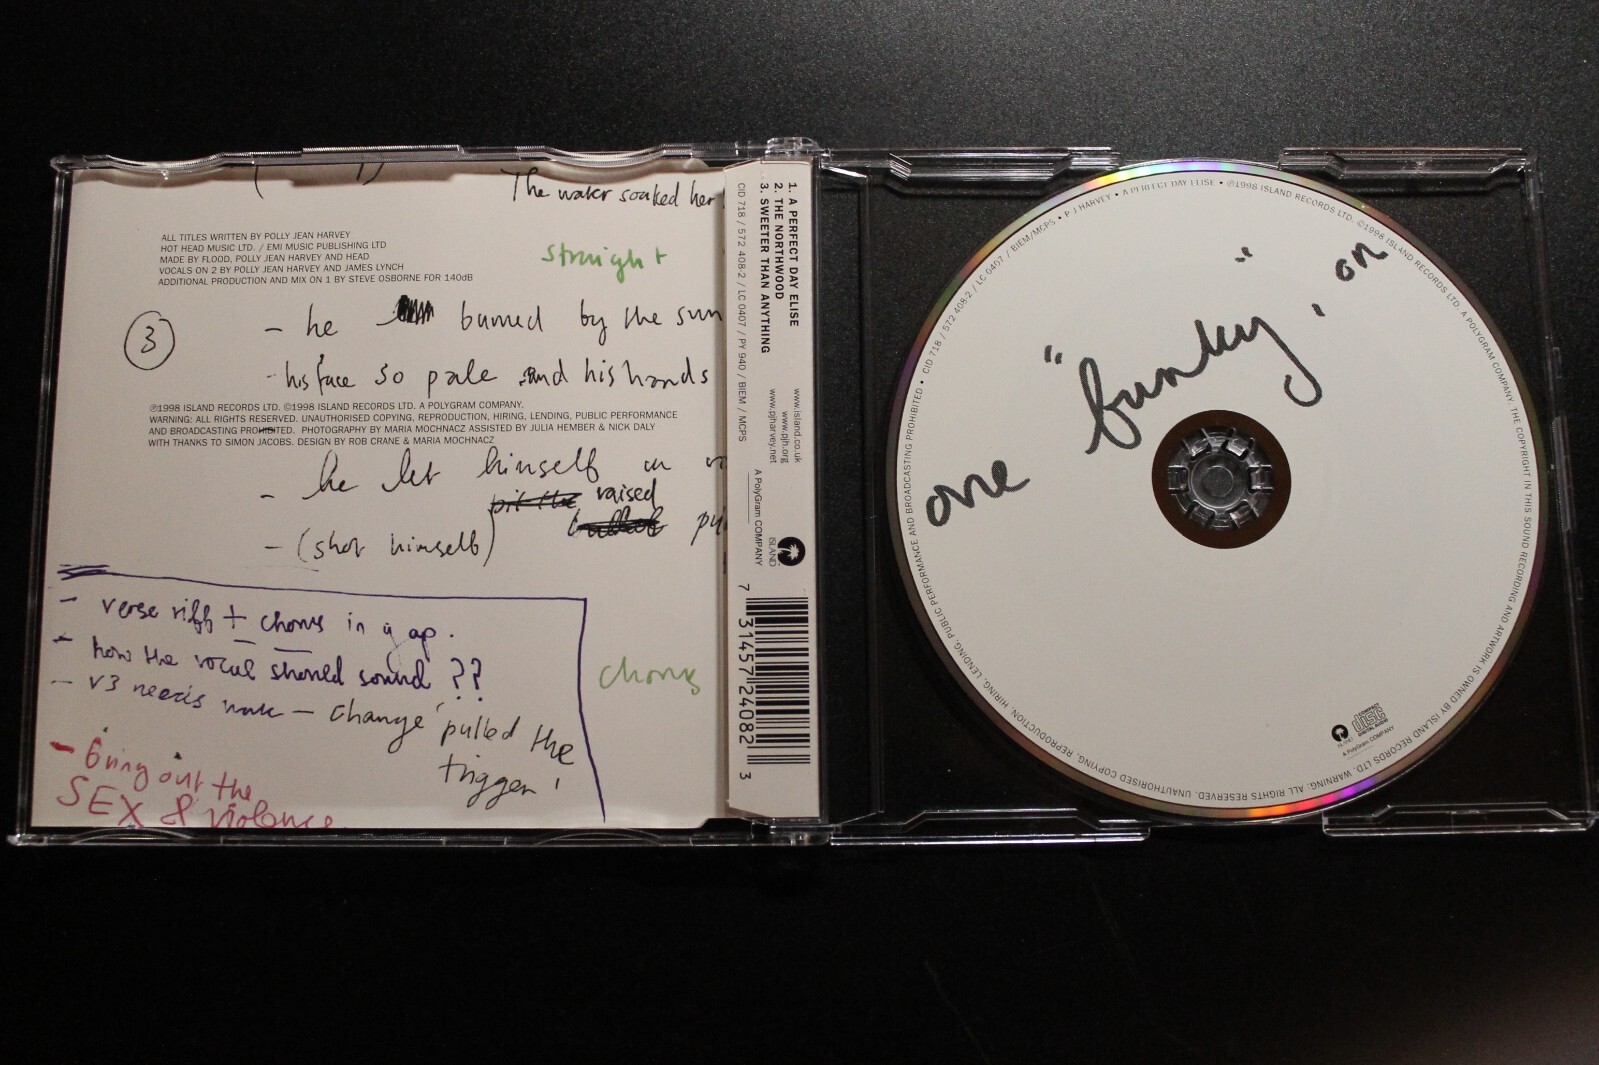 The water soaked her
ALL TITLES WRITTEN BY POLLY JEAN HARVEY
HOT HEAD MUSIC LTD. / EMI MUSIC PUBLISHING LTD
MADE BY FLOOD, POLLY JEAN HARVEY AND HEAD
VOCALS ON 2 BY POLLY JEAN HARVEY AND JAMES LYNCH
ADDITIONAL PRODUCTION AND MIX ON 1 BY STEVE OSBORNE FOR 140dB
straight
3
- he burned by the sun
- his face so pale and his hands
℗1998 ISLAND RECORDS LTD. ©1998 ISLAND RECORDS LTD. A POLYGRAM COMPANY.
WARNING: ALL RIGHTS RESERVED. UNAUTHORISED COPYING, REPRODUCTION, HIRING, LENDING, PUBLIC PERFORMANCE
AND BROADCASTING PROHIBITED. PHOTOGRAPHY BY MARIA MOCHNACZ ASSISTED BY JULIA HEMBER & NICK DALY
WITH THANKS TO SIMON JACOBS. DESIGN BY ROB CRANE & MARIA MOCHNACZ
- he let himself in
pit the raised
bullet
- (shot himself)
- verse riff + chorus in gap.
- how the vocal should sound ??
- v3 needs work - change 'pulled the
trigger'
chorus
- bring out the
SEX & violence
1. A PERFECT DAY ELISE
2. THE NORTHWOOD
3. SWEETER THAN ANYTHING
CID 718 / 572 408-2 / LC 0407 / PY 940 / BIEM / MCPS
www.island.co.uk
www.pjh.org
www.pjharvey.net
ISLAND
A PolyGram COMPANY
7 31457 24082 3
one "funky", on
CID 718 / 572 408-2 / LC 0407 / BIEM/MCPS • P J HARVEY • A PERFECT DAY ELISE • ℗1998 ISLAND RECORDS LTD. ©1998 ISLAND RECORDS LTD. A POLYGRAM COMPANY. THE COPYRIGHT IN THIS SOUND RECORDING AND ARTWORK IS OWNED BY ISLAND RECORDS LTD. WARNING: ALL RIGHTS RESERVED. UNAUTHORISED COPYING, REPRODUCTION, HIRING, LENDING, PUBLIC PERFORMANCE AND BROADCASTING PROHIBITED •
COMPACT
disc
DIGITAL AUDIO
ISLAND
A PolyGram COMPANY